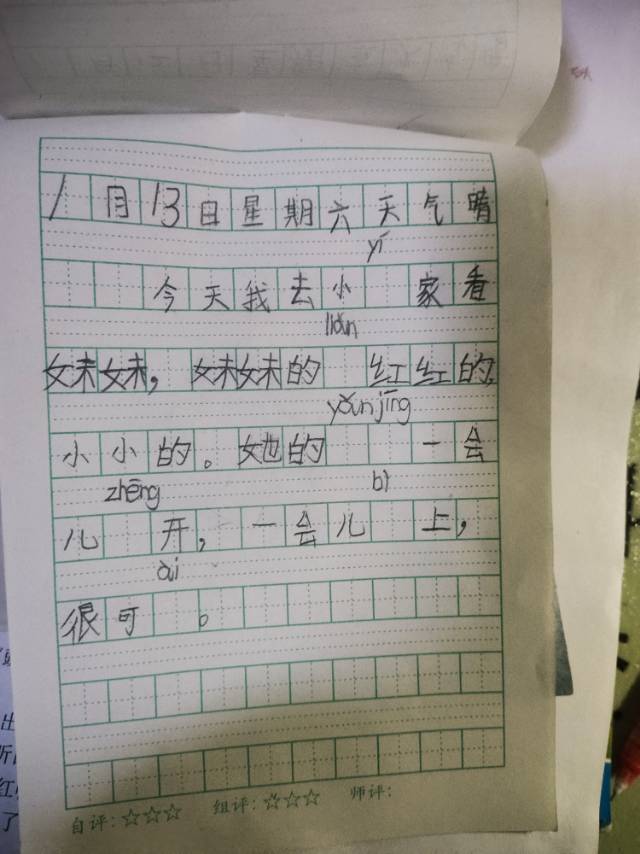 1月13日星期六天气晴
yí
今天我去小 家看
liǎn
妹妹，妹妹的 红红的，
yǎn jīng
小小的。她的 一会
zhēng bì
儿 开，一会儿 上，
ài
很可 。
自评：☆☆☆ 组评：☆☆☆ 师评：
出
红
了